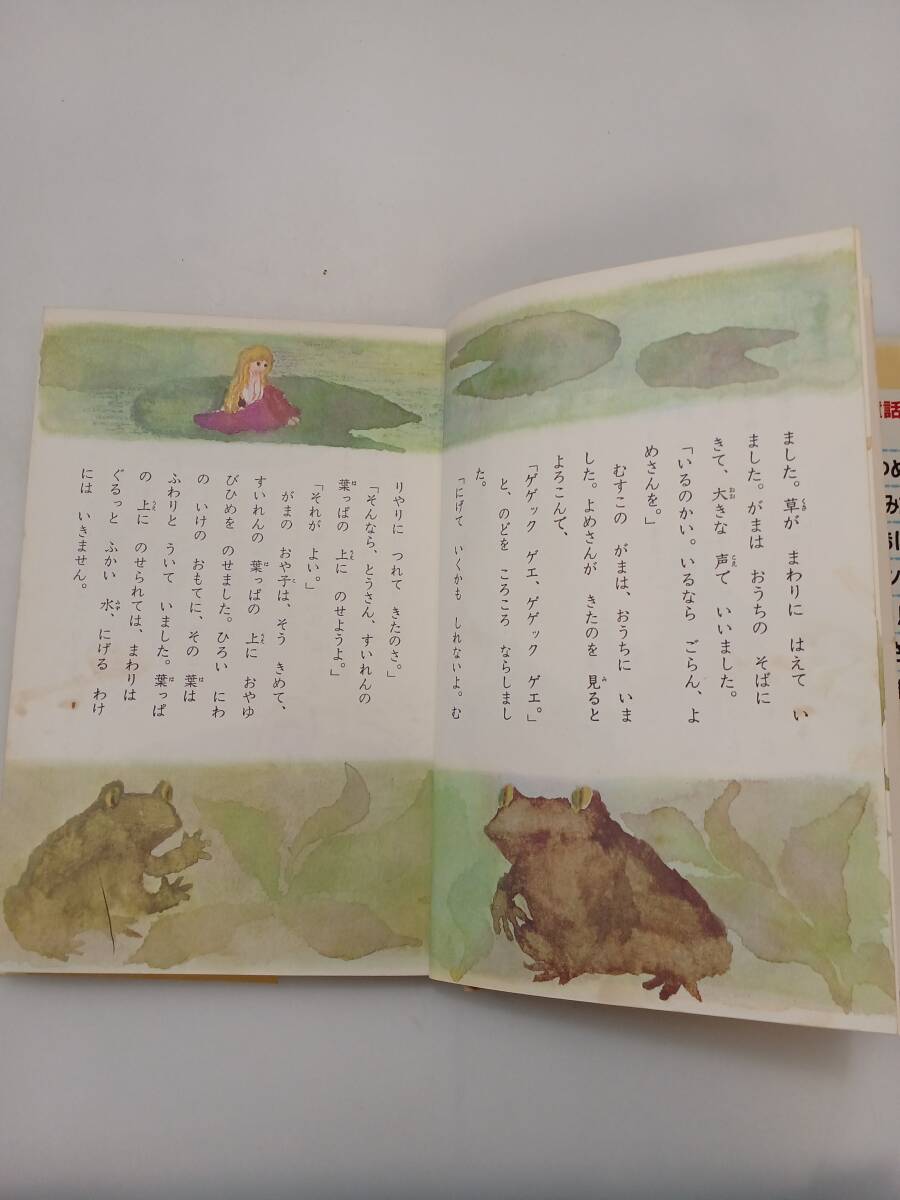 ました。草が まわりに はえて い
ました。がまは おうちの そばに
きて、大きな 声で いいました。
「いるのかい。いるなら ごらん、よ
めさんを。」
むすこの がまは、おうちに いま
した。よめさんが きたのを 見ると
よろこんで、
「ゲゲック ゲエ、ゲゲック ゲエ。」
と、のどを ころころ ならしまし
た。
「にげて いくかも しれないよ。む
りやりに つれて きたのさ。」
「そんなら、とうさん、すいれんの
葉っぱの 上に のせようよ。」
「それが よい。」
がまの おや子は、そう きめて、
すいれんの 葉っぱの 上に おやゆ
びひめを のせました。ひろい にわ
の いけの おもてに、その 葉は
ふわりと ういて いました。葉っぱ
の 上に のせられては、まわりは
ぐるっと ふかい 水、にげる わけ
には いきません。
話